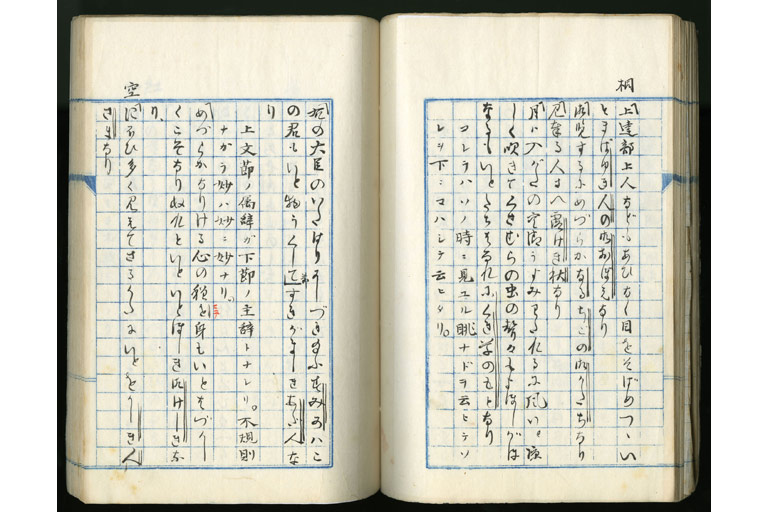 桐
上達部上人などもあひなく目をそばめつゝい
とまばゆき人の御おぼえなり
御覧ずるにめづらかなるちごの御かたちなり
人さへ露けき秋なり
月は入がたの空清うすみわたれるに風いと凉
しく吹きてくさむらの虫の聲々もよほしがほ
なるもいとたちはなれにくき草のもとなり
コレラハソノ時ニ見ユル眺ナドヲ云ヒテソ
レヲ下ニマハシテ云ヒタリ。
の大臣のいたはりかしづき給ふすみかはこ
の君もいと物うくしてすきがましきあだ人な
り
上文節ノ偏辞ガ下節ノ主辞トナレリ。不規則
ナガラ妙ハ妙ニ妙ナリ。
めづらかなりける心の程を身もいとはづかし
くこそなりぬれといといとほしき御けしきな
り、
空
にほひ多く見えてさるかたにいとをかしき人
ざまなり